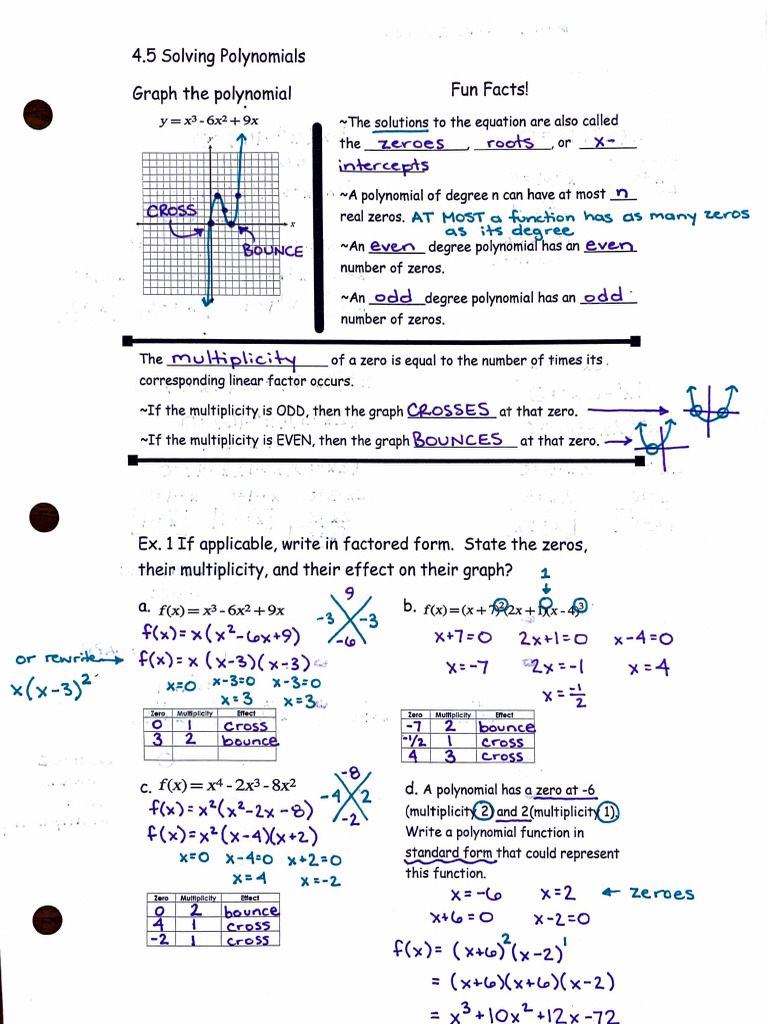 4.5 Solving Polynomials
Graph the polynomial
y = x³ - 6x² + 9x
y
x
CROSS
BOUNCE
Fun Facts!
~The solutions to the equation are also called
the zeroes, roots, or x-
intercepts
~A polynomial of degree n can have at most n
real zeros. AT MOST a function has as many zeros
as its degree
~An even degree polynomial has an even
number of zeros.
~An odd degree polynomial has an odd
number of zeros.
The multiplicity of a zero is equal to the number of times its
corresponding linear factor occurs.
~If the multiplicity is ODD, then the graph CROSSES at that zero.
~If the multiplicity is EVEN, then the graph BOUNCES at that zero.
Ex. 1 If applicable, write in factored form. State the zeros,
their multiplicity, and their effect on their graph?
a. f(x) = x³ - 6x² + 9x
9
-3 -3
-6
f(x) = x(x² - 6x + 9)
f(x) = x (x-3)(x-3)
or rewrite
x(x-3)²
x=0 x-3=0 x-3=0
x=3 x=3
Zero Multiplicity Effect
0 1 cross
3 2 bounce
1
b. f(x) = (x + 7)²(2x + 1)(x - 4)³
x+7=0 2x+1=0 x-4=0
x=-7 2x=-1 x=4
x = -1/2
Zero Multiplicity Effect
-7 2 bounce
-1/2 1 cross
4 3 cross
c. f(x) = x⁴ - 2x³ - 8x²
-8
-4 2
-2
f(x) = x²(x² - 2x - 8)
f(x) = x²(x-4)(x+2)
x=0 x-4=0 x+2=0
x=4 x=-2
Zero Multiplicity Effect
0 2 bounce
4 1 cross
-2 1 cross
d. A polynomial has a zero at -6
(multiplicity 2) and 2(multiplicity 1).
Write a polynomial function in
standard form that could represent
this function.
x=-6 x=2 ← zeroes
x+6=0 x-2=0
f(x) = (x+6)²(x-2)¹
= (x+6)(x+6)(x-2)
= x³+10x²+12x-72